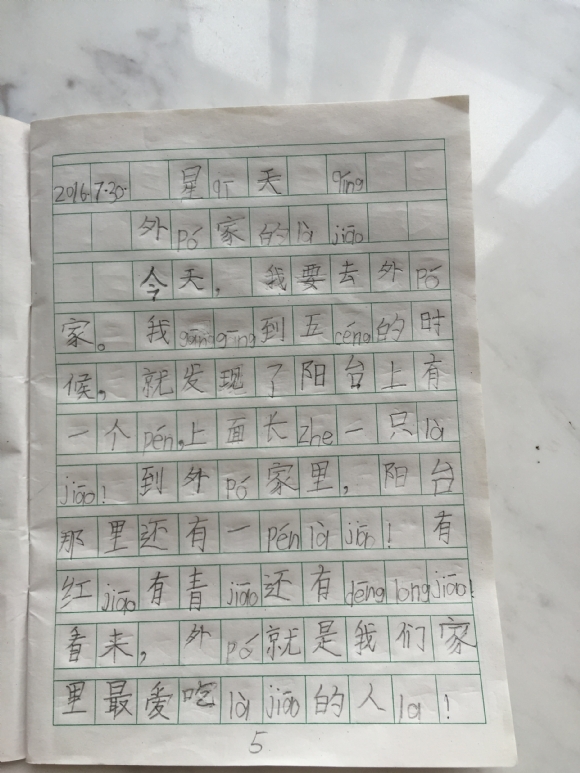 2016.7.30. 星qī天 qíng
外pó家的là jiāo
今天，我要去外pó
家。我gānggāng到五céng的时
候，就发现了阳台上有
一个pén，上面长zhe一只là
jiāo！到外pó家里，阳台
那里还有一pén là jiāo！有
红jiāo有青jiāo还有dēng long jiāo！
看来，外pó就是我们家
里最爱吃là jiāo的人la！
5